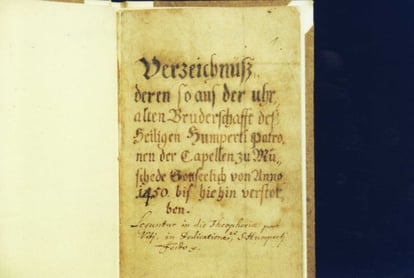 Verzeichniß
deren so aus der uhr
alten Bruderschafft deß
Heiligen Humperti Patro,
nen der Capellen zu Mü,
schede Gottseelich von Anno
1450. bis hiehin verstor
ben.
Leguntur in die Theophoriæ post
in Dedicatione et S. Humperti
Festo